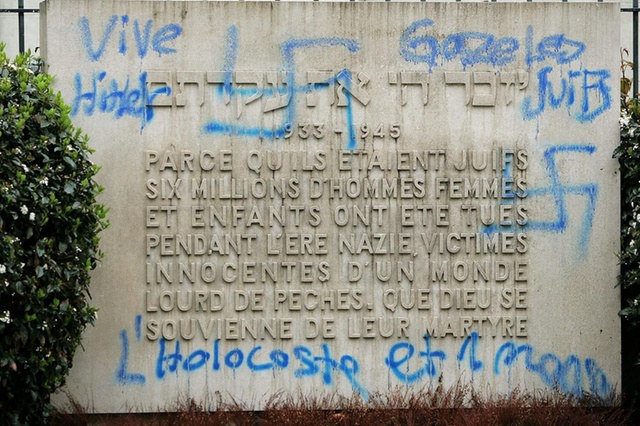 Vive
Hitler
Juifs
יזכר ה' את עקדתם
1933 - 1945
PARCE QU'ILS ETAIENT JUIFS
SIX MILLIONS D'HOMMES FEMMES
ET ENFANTS ONT ETE TUES
PENDANT L'ERE NAZIE, VICTIMES
INNOCENTES D'UN MONDE
LOURD DE PECHES. QUE DIEU SE
SOUVIENNE DE LEUR MARTYRE
L'Holocoste et 1